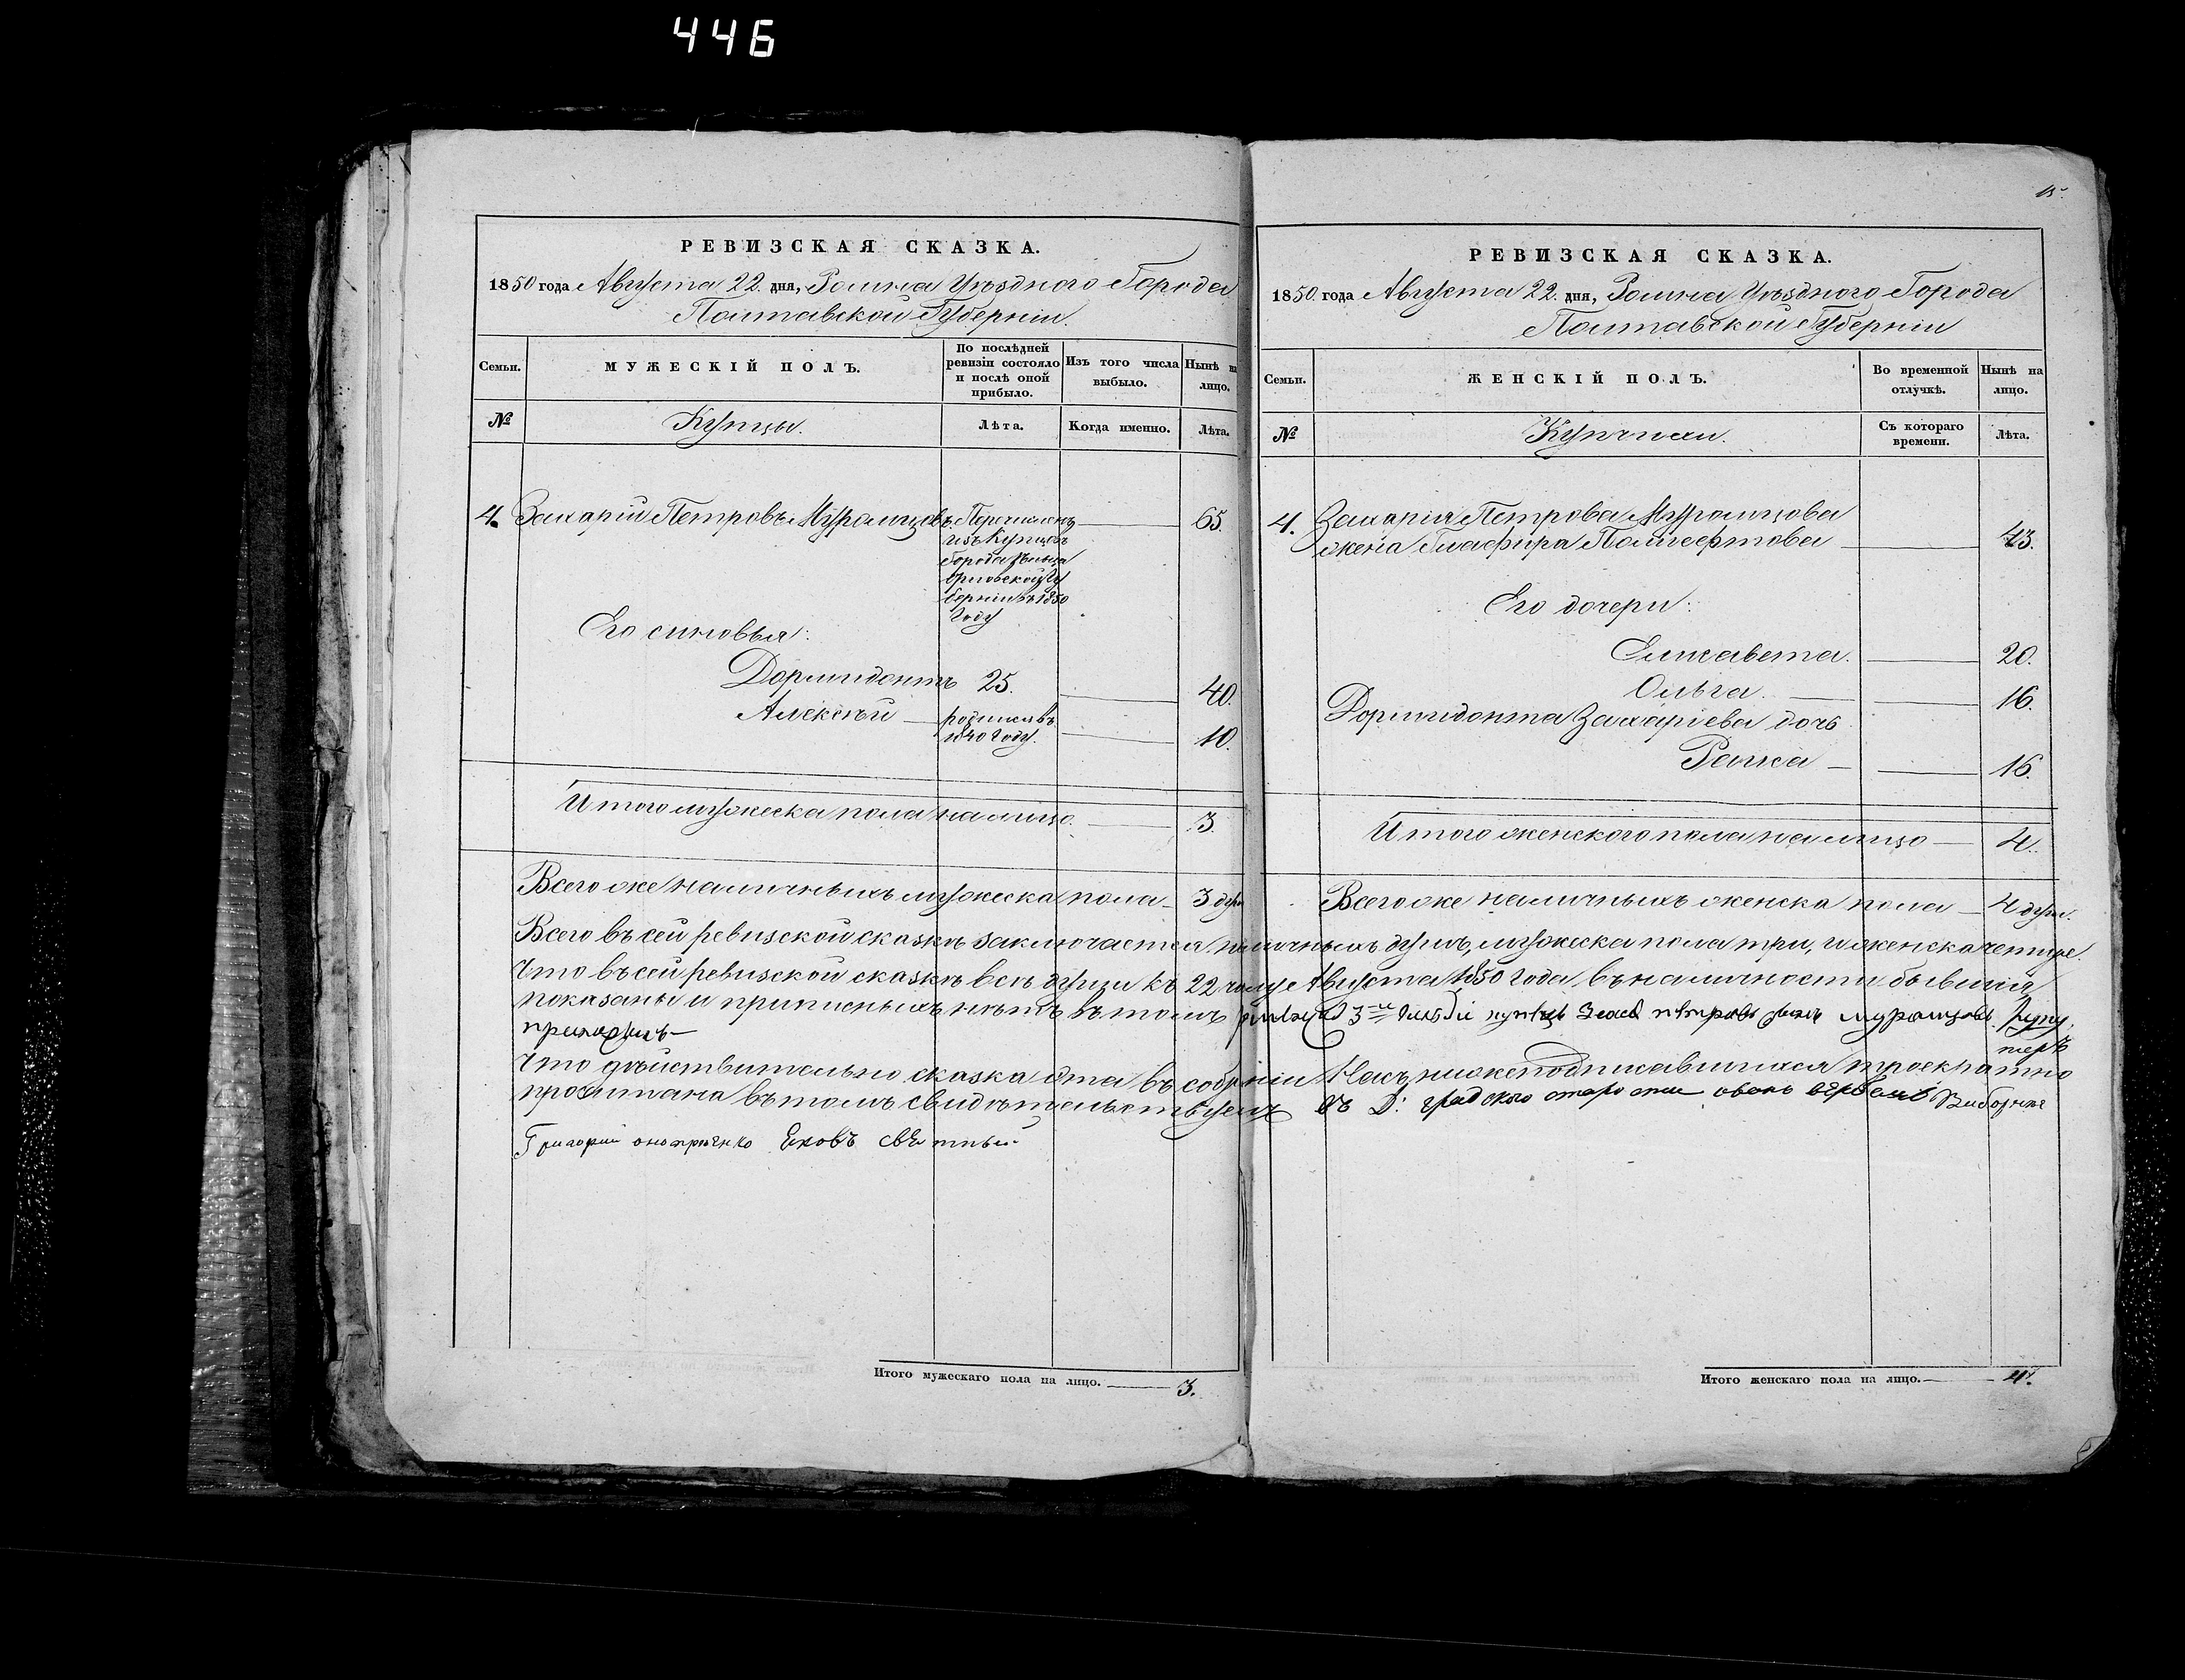 446
РЕВИЗСКАЯ СКАЗКА.
1850 года Августа 22. дня, Ромна Уѣзднаго Города
Полтавской Губерніи.
Семьи.
МУЖЕСКІЙ ПОЛЪ.
По послѣдней ревизіи состояло и послѣ оной прибыло.
Изъ того числа выбыло.
Нынѣ на лицо.
№
Купцы.
Лѣта.
Когда именно.
Лѣта.
4. Захарій Петровъ Муромцовъ Перечисленъ 65.
изъ Купцовъ
Города
Орловской Гу
берніи въ 1850
Году
Его синовья:
Дормидонтъ 25. 40.
Алексѣй родился въ
1840 Году. 10.
Итого мужеска пола на лицо. 3.
Всего же наличныхъ мужеска пола 3 душ
Итого мужескаго пола на лицо. 3.
15
РЕВИЗСКАЯ СКАЗКА.
1850. года Августа 22. дня, Ромна Уѣзднаго Города
Полтавской Губерніи
Семьи.
ЖЕНСКІЙ ПОЛЪ.
Во временной отлучкѣ.
Нынѣ на лицо.
№
Купчихи.
Съ котораго времени.
Лѣта.
4. Захарія Петрова Муромцова
жена Глафира 43.
Его дочери:
Елисавета. 20.
Ольга. 16.
Дормидонта Захаріева дочь
Раиса 16.
Итого женского пола на лицо 4.
Всего же наличныхъ женска пола 4 душ.
Всего въ сей ревизской сказкѣ заключается наличныхъ душъ, мужеска пола три, и женска четире.
Что въ сей ревизской сказкѣ всѣ души къ 22 числу Августа 1850 Года въ наличности бывшія
показаны и приписныхъ нѣтъ въ томъ 3 Петровъ Муромцовъ Руку
приложилъ
Что дѣйствительно сказка эта въ собраніи Насъ нижеподписавшихся троекратно
прочитана въ томъ свидѣтельствуемъ градского Виборние
Григорій
Итого женскаго пола на лицо. 4.